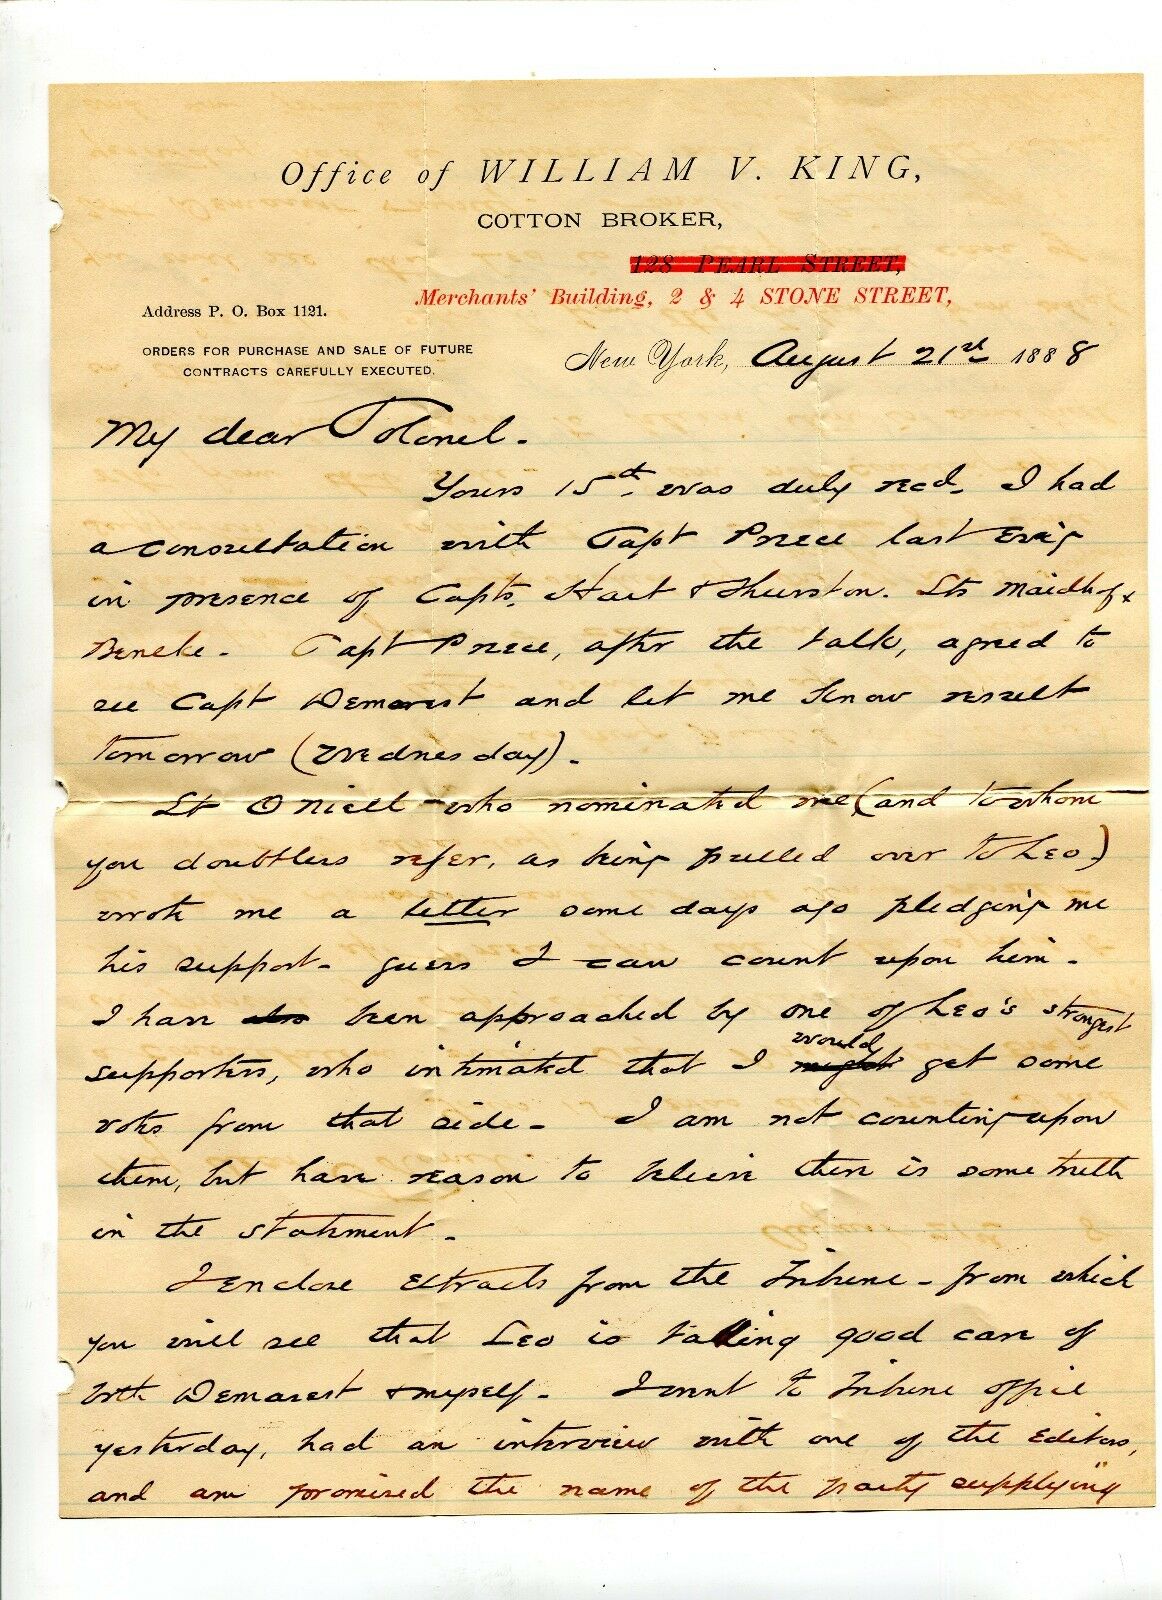 Office of WILLIAM V. KING,
COTTON BROKER,
128 PEARL STREET,
Merchants' Building, 2 & 4 STONE STREET,
Address P. O. Box 1121.
ORDERS FOR PURCHASE AND SALE OF FUTURE
CONTRACTS CAREFULLY EXECUTED.
New York, August 21st 1888
My dear Colonel.
Yours 15th. was duly recd. I had
a consultation with Capt Preece last Evng
in presence of Capts. Hart & Thurston. Lts Maidhof &
Beneke. Capt Preece, after the talk, agreed to
see Capt Demarest and let me know result
tomorrow (Wednesday).
Lt O'Niell who nominated me (and to whom
you doubtless refer, as being pulled over to Leo)
wrote me a letter some days ago pledging me
his support. guess I can count upon him.
I have also been approached by one of Leo's strongest
supporters, who intimated that I might would get some
votes from that side. I am not counting upon
them, but have reason to believe there is some truth
in the statement.
I enclose extracts from the Tribune. from which
you will see that Leo is taking good care of
both Demarest & myself. I went to Tribune office
yesterday, had an interview with one of the Editors,
and am promised the name of the party supplying